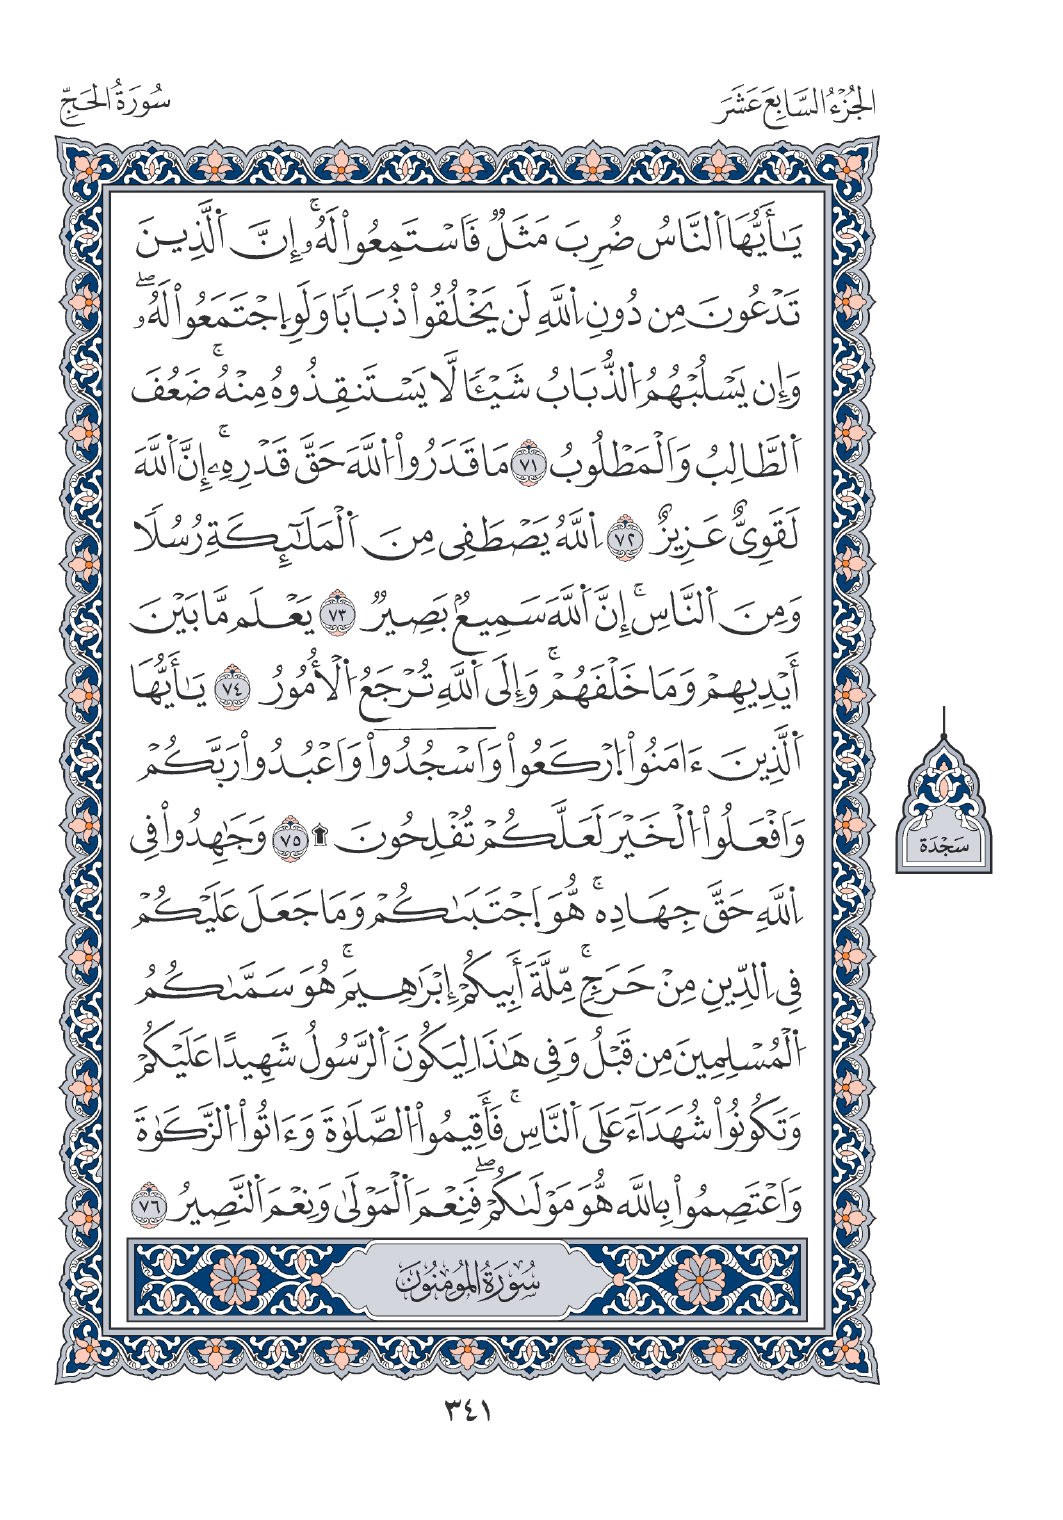 الجُزْءُ السَّابِعَ عَشَرَ
سُورَةُ الحَجِّ
يَٰٓأَيُّهَا اَ۬لنَّاسُ ضُرِبَ مَثَلٞ فَاَسْتَمِعُواْ لَهُۥٓۚ إِنَّ اَ۬لَّذِينَ
تَدْعُونَ مِن دُونِ اِ۬للَّهِ لَن يَخْلُقُواْ ذُبَابٗا وَلَوِ اِ۪جْتَمَعُواْ لَهُۥۖ
وَإِن يَسْلُبْهُمُ اُ۬لذُّبَابُ شَيْـٔٗا لَّا يَسْتَنقِذُوهُ مِنْهُۚ ضَعُفَ
اَ۬لطَّالِبُ وَالْمَطْلُوبُ ٧١ مَا قَدَرُواْ اُ۬للَّهَ حَقَّ قَدْرِهِۦٓۚ إِنَّ اَ۬للَّهَ
لَقَوِيٌّ عَزِيزٌ ٧٢ اِ۬للَّهُ يَصْطَفِى مِنَ اَ۬لْمَلَٰٓئِكَةِ رُسُلٗا
وَمِنَ اَ۬لنَّاسِۚ إِنَّ اَ۬للَّهَ سَمِيعُۢ بَصِيرٞ ٧٣ يَعْلَم مَّا بَيْنَ
أَيْدِيهِمْ وَمَا خَلْفَهُمْۚ وَإِلَى اَ۬للَّهِ تُرْجَعُ اُ۬لْأُمُورُ ٧٤ يَٰٓأَيُّهَا
اَ۬لَّذِينَ ءَامَنُواْ اُ۪رْكَعُواْ وَاسْجُدُواْ وَاعْبُدُواْ رَبَّكُمْ
وَافْعَلُواْ اُ۬لْخَيْرَ لَعَلَّكُمْ تُفْلِحُونَ ۩ ٧٥ وَجَٰهِدُواْ فِى
اِ۬للَّهِ حَقَّ جِهَادِهِۚ هُّوَ اَ۪جْتَبَىٰكُمْ وَمَا جَعَلَ عَلَيْكُمْ
فِى اِ۬لدِّينِ مِنْ حَرَجٖۚ مِّلَّةَ أَبِيكُمْ إِبْرَٰهِيمَۚ هُوَ سَمَّىٰكُمُ
اُ۬لْمُسْلِمِينَ مِن قَبْلُ وَفِى هَٰذَا لِيَكُونَ اَ۬لرَّسُولُ شَهِيدًا عَلَيْكُمْ
وَتَكُونُواْ شُهَدَآءَ عَلَى اَ۬لنَّاسِۚ فَأَقِيمُواْ اُ۬لصَّلَوٰةَ وَءَاتُواْ اُ۬لزَّكَوٰةَ
وَاعْتَصِمُواْ بِاللَّه هُّوَ مَوْلَىٰكُمْۖ فَنِعْمَ اَ۬لْمَوْلَىٰ وَنِعْمَ اَ۬لنَّصِيرُ ٧٦
سُورَةُ المُومِنُونَ
سَجْدَة
٣٤١